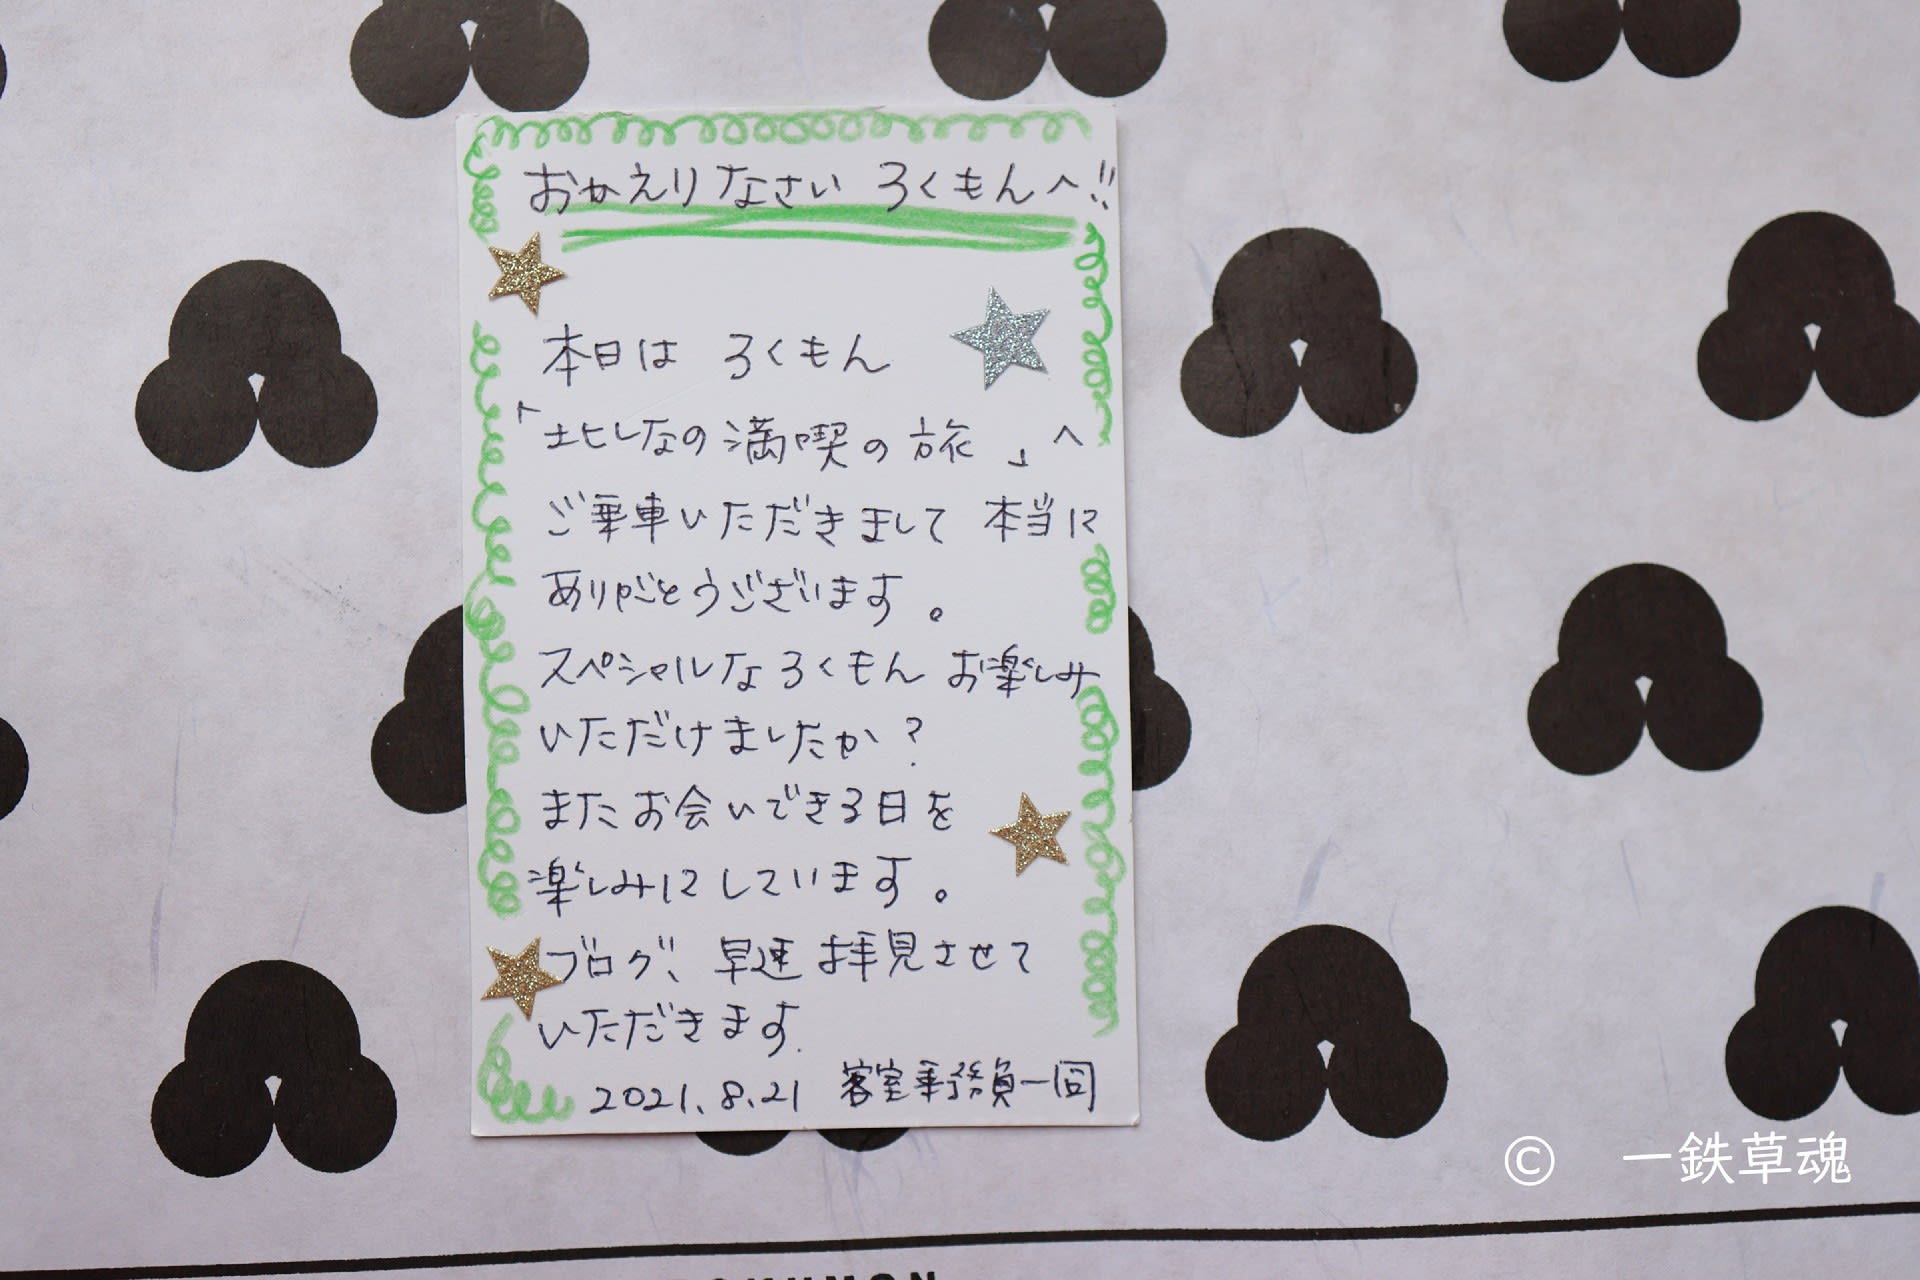 おかえりなさい ろくもんへ!!
本日は ろくもん
「北しなの満喫の旅」へ
ご乗車いただきまして 本当に
ありがとうございます。
スペシャルなろくもん お楽しみ
いただけましたか?
またお会いできる日を
楽しみにしています。
ブログ、早速拝見させて
いただきます.
2021.8.21 客室乗務員一同
© 一鉄草魂